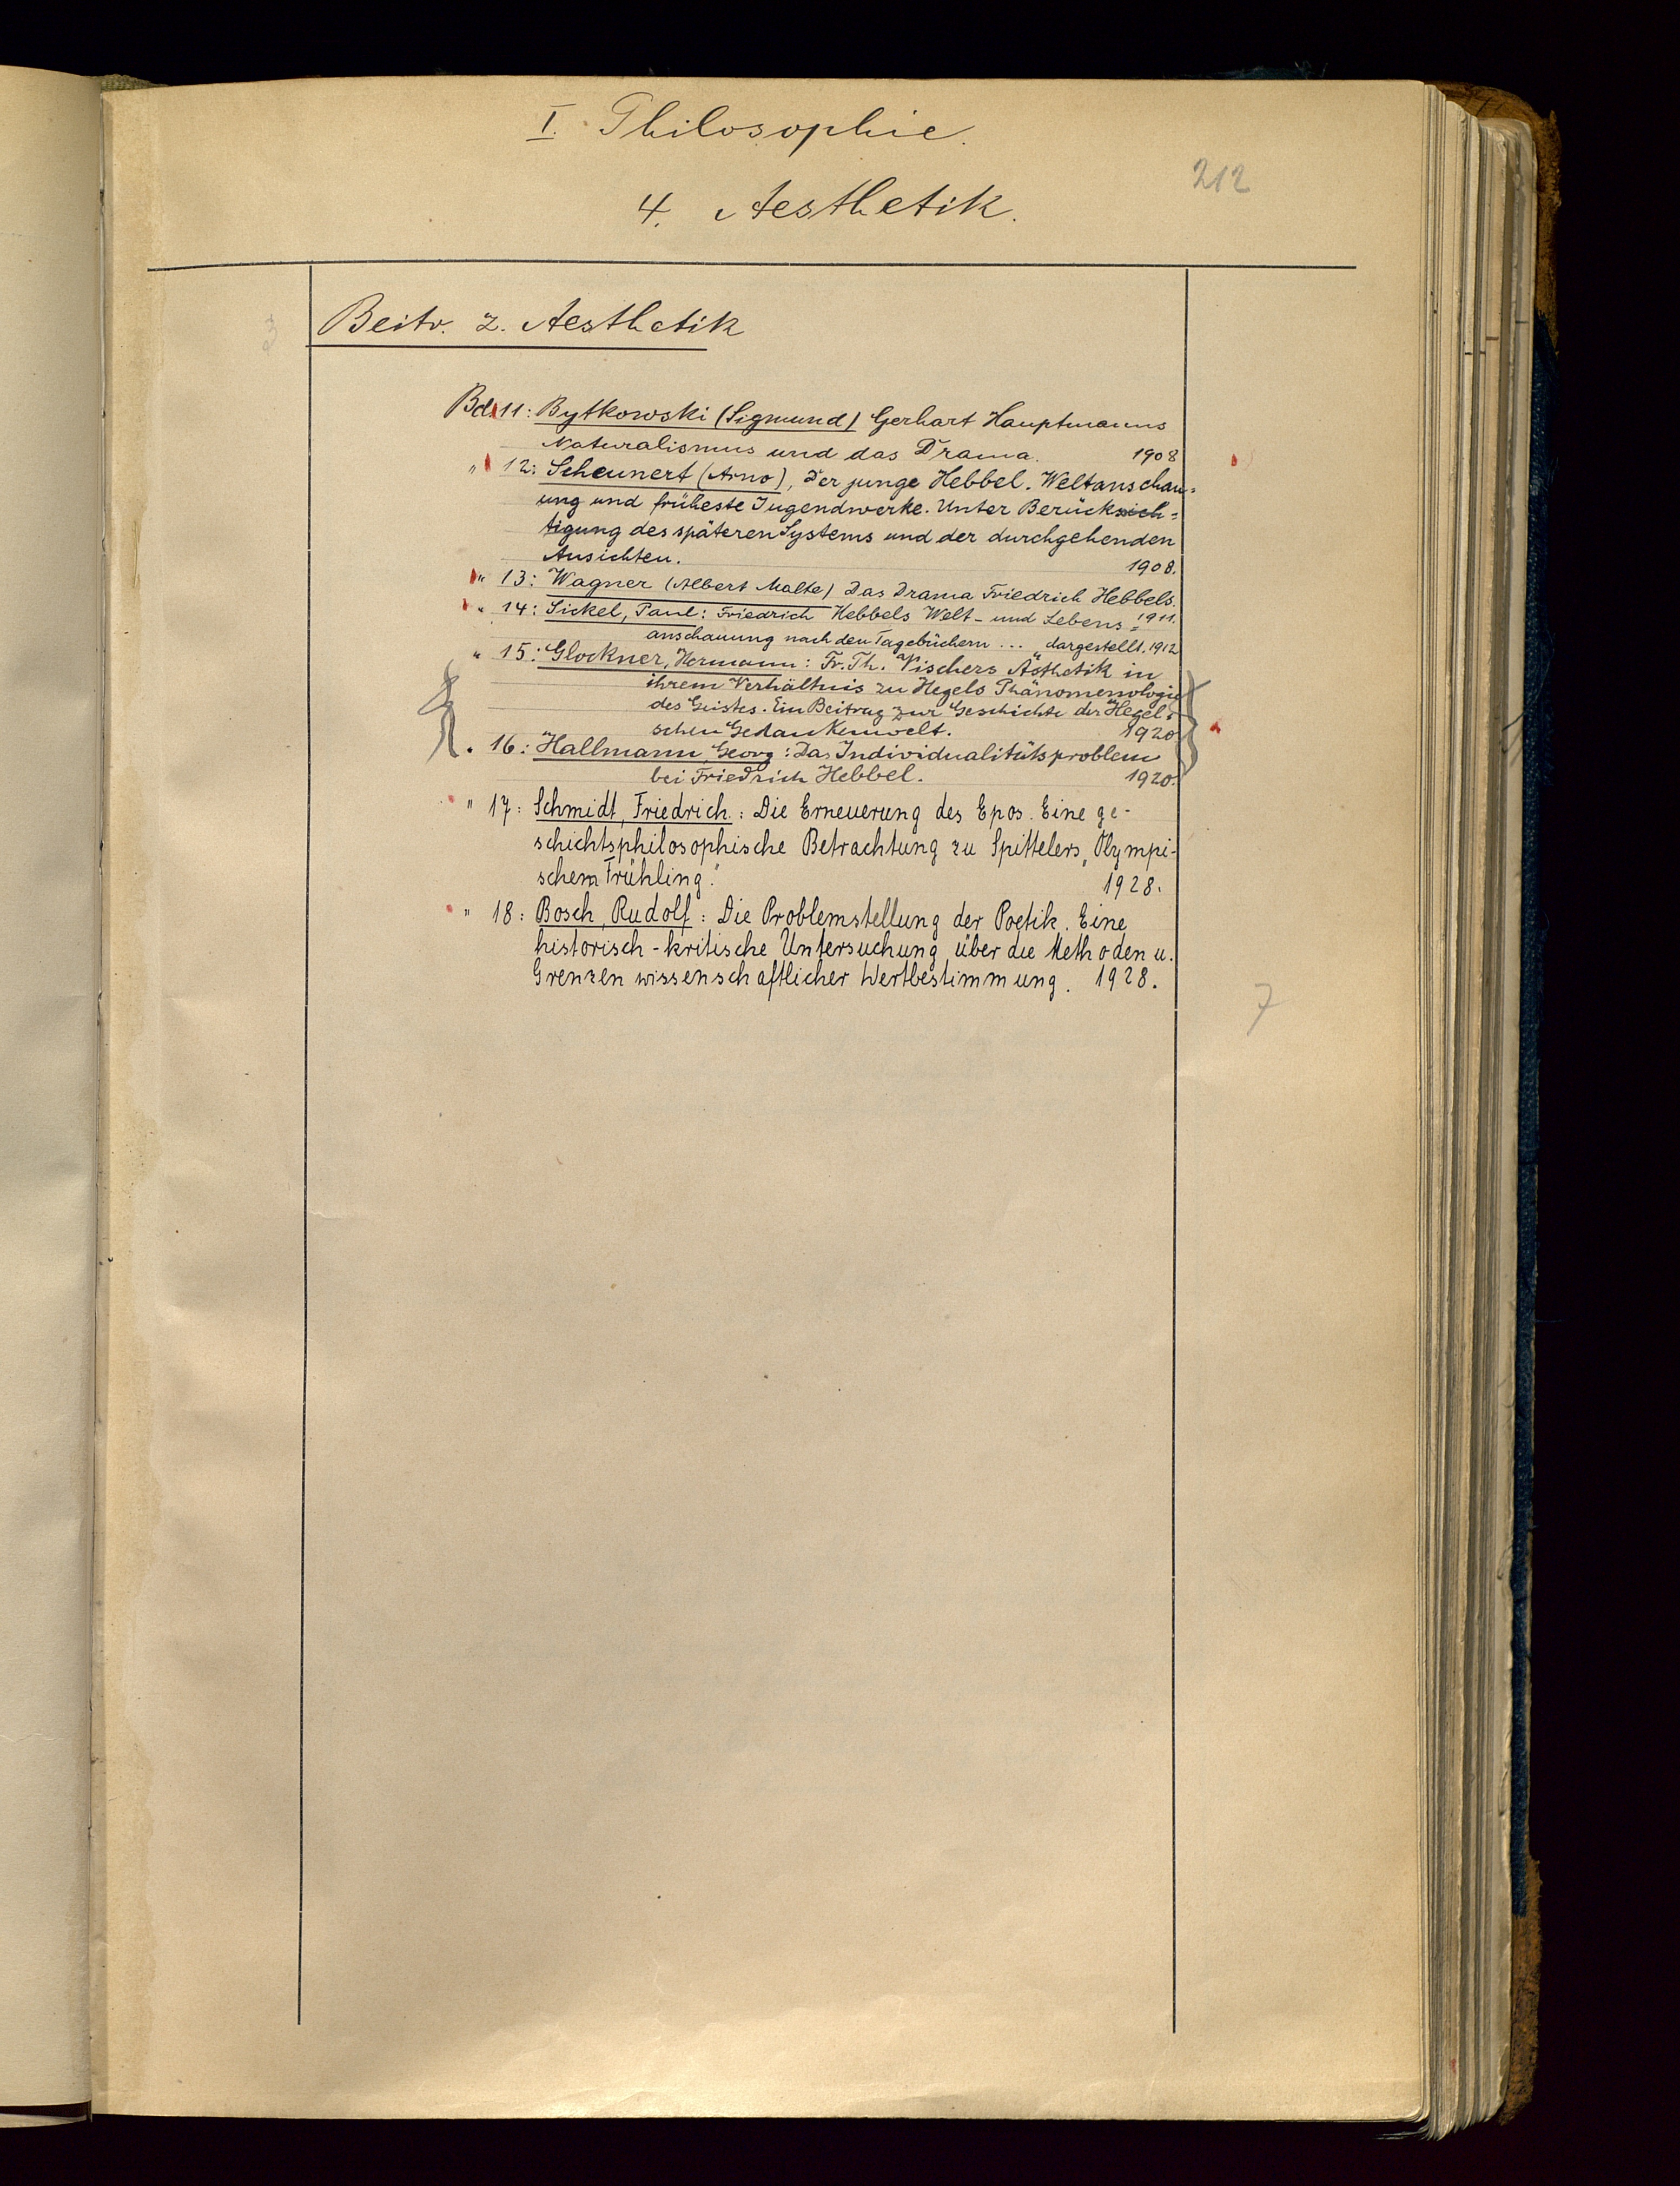 I. Philosophie.
212
4. Aesthetik.
3
Beitr. z. Aesthetik
Bd. 11: Bytkowski (Sigmund) Gerhart Hauptmanns
Naturalismus und das Drama. 1908
" 12: Scheunert (Arno), Der junge Hebbel. Weltanschau=
ung und früheste Jugendwerke. Unter Berücksich=
tigung des späteren Systems und der durchgehenden
Ansichten. 1908.
" 13: Wagner (Albert Malte) Das Drama Friedrich Hebbels.
1911.
" 14: Sickel, Paul: Friedrich Hebbels Welt- und Lebens=
anschauung nach den Tagebüchern ... dargestellt. 1912
" 15: Glockner, Hermann: Fr. Th. Vischers Ästhetik in
ihrem Verhältnis zu Hegels Phänomenologie
des Geistes. Ein Beitrag zur Geschichte der Hegel=
schen Gedankenwelt. 1920
" 16: Hallmann, Georg: Das Individualitätsproblem
bei Friedrich Hebbel. 1920.
" 17: Schmidt, Friedrich: Die Erneuerung des Epos. Eine ge-
schichtsphilosophische Betrachtung zu Spittelers „Olympi-
schem Frühling". 1928.
" 18: Bosch, Rudolf: Die Problemstellung der Poetik. Eine
historisch-kritische Untersuchung über die Methoden u.
Grenzen wissenschaftlicher Wertbestimmung. 1928.
7